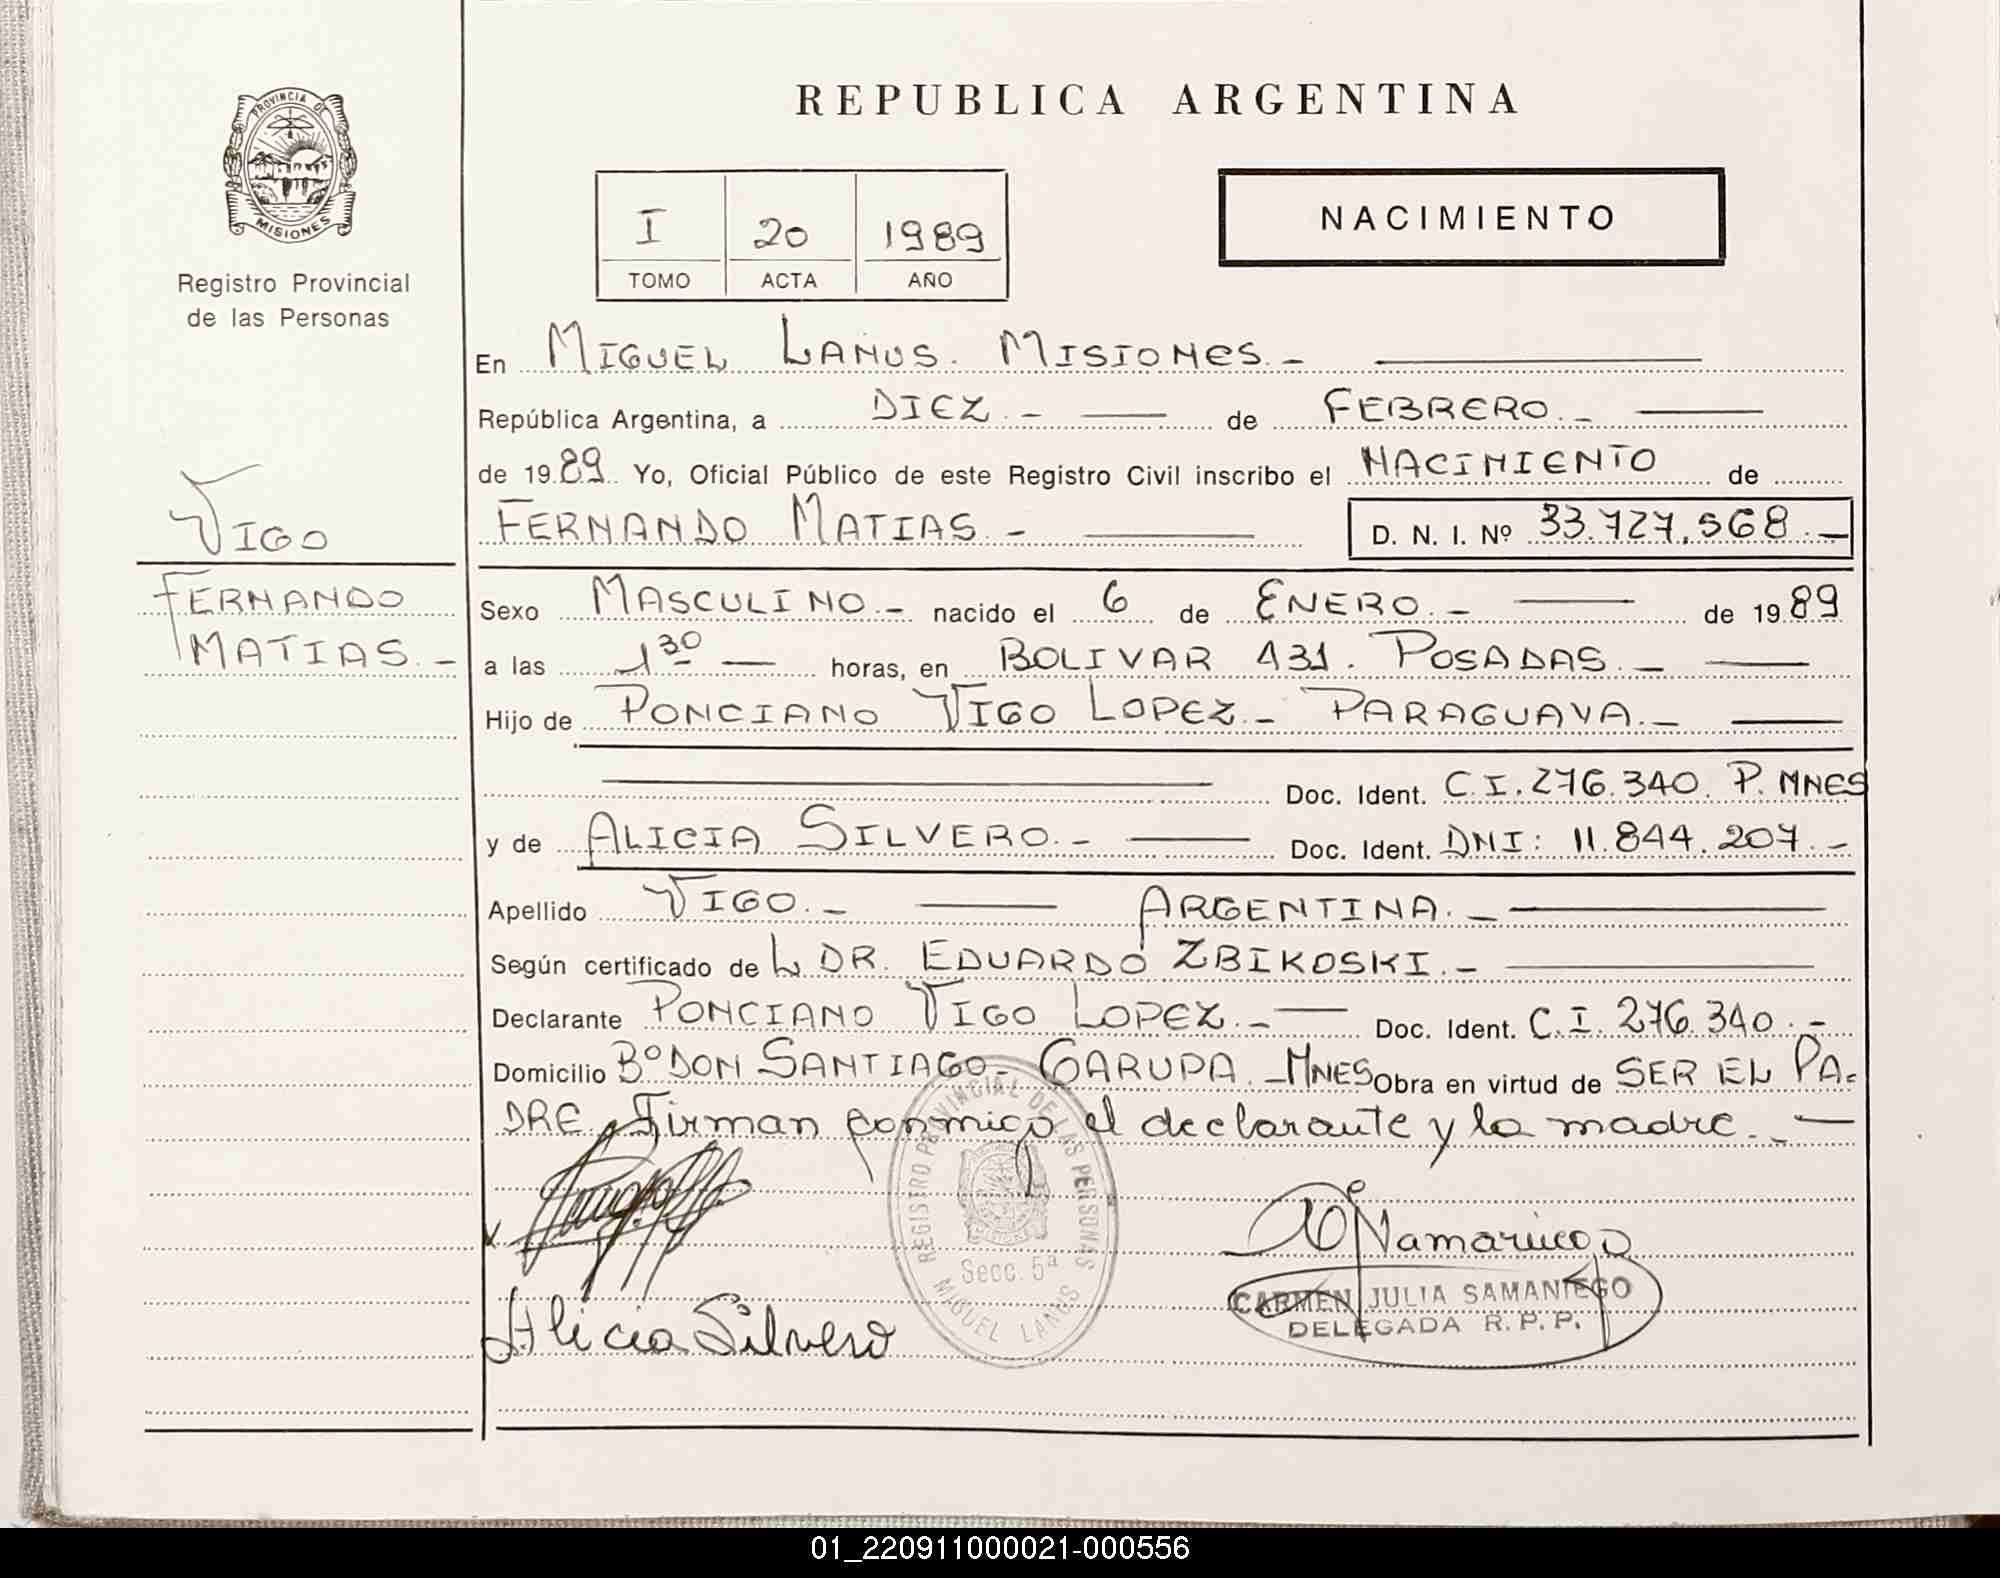 PROVINCIA DE
MISIONES
Registro Provincial
de las Personas
VIGO
FERNANDO
MATIAS.-
REPUBLICA ARGENTINA
I 20 1989
TOMO ACTA AÑO
NACIMIENTO
En MIGUEL LANUS. MISIONES.-
República Argentina, a DIEZ.- de FEBRERO.-
de 1989. Yo, Oficial Público de este Registro Civil inscribo el NACIMIENTO de
FERNANDO MATIAS.- D. N. I. Nº 33.727.568.-
Sexo MASCULINO.- nacido el 6 de ENERO.- de 1989
a las 1 30 horas, en BOLIVAR 431. POSADAS.-
Hijo de PONCIANO VIGO LOPEZ.- PARAGUAYA.-
Doc. Ident. C.I. 276.340. P. MNES
y de ALICIA SILVERO.- Doc. Ident. DNI: 11.844.207.-
Apellido VIGO.- ARGENTINA.-
Según certificado de L DR. EDUARDO ZBIKOSKI.-
Declarante PONCIANO VIGO LOPEZ.- Doc. Ident. C.I. 276.340.-
Domicilio Bº DON SANTIAGO- GARUPA.-MNES Obra en virtud de SER EL PA=
DRE. Firman conmigo el declarante y la madre.-
REGISTRO PROVINCIAL DE LAS PERSONAS
Secc. 5ª
MIGUEL LANUS
Alicia Silvero
CARMEN JULIA SAMANIEGO
DELEGADA R. P. P.
01_220911000021-000556